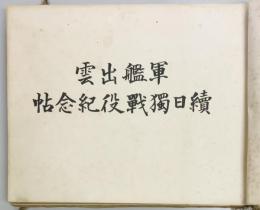 軍艦出雲
續日獨戰役紀念帖